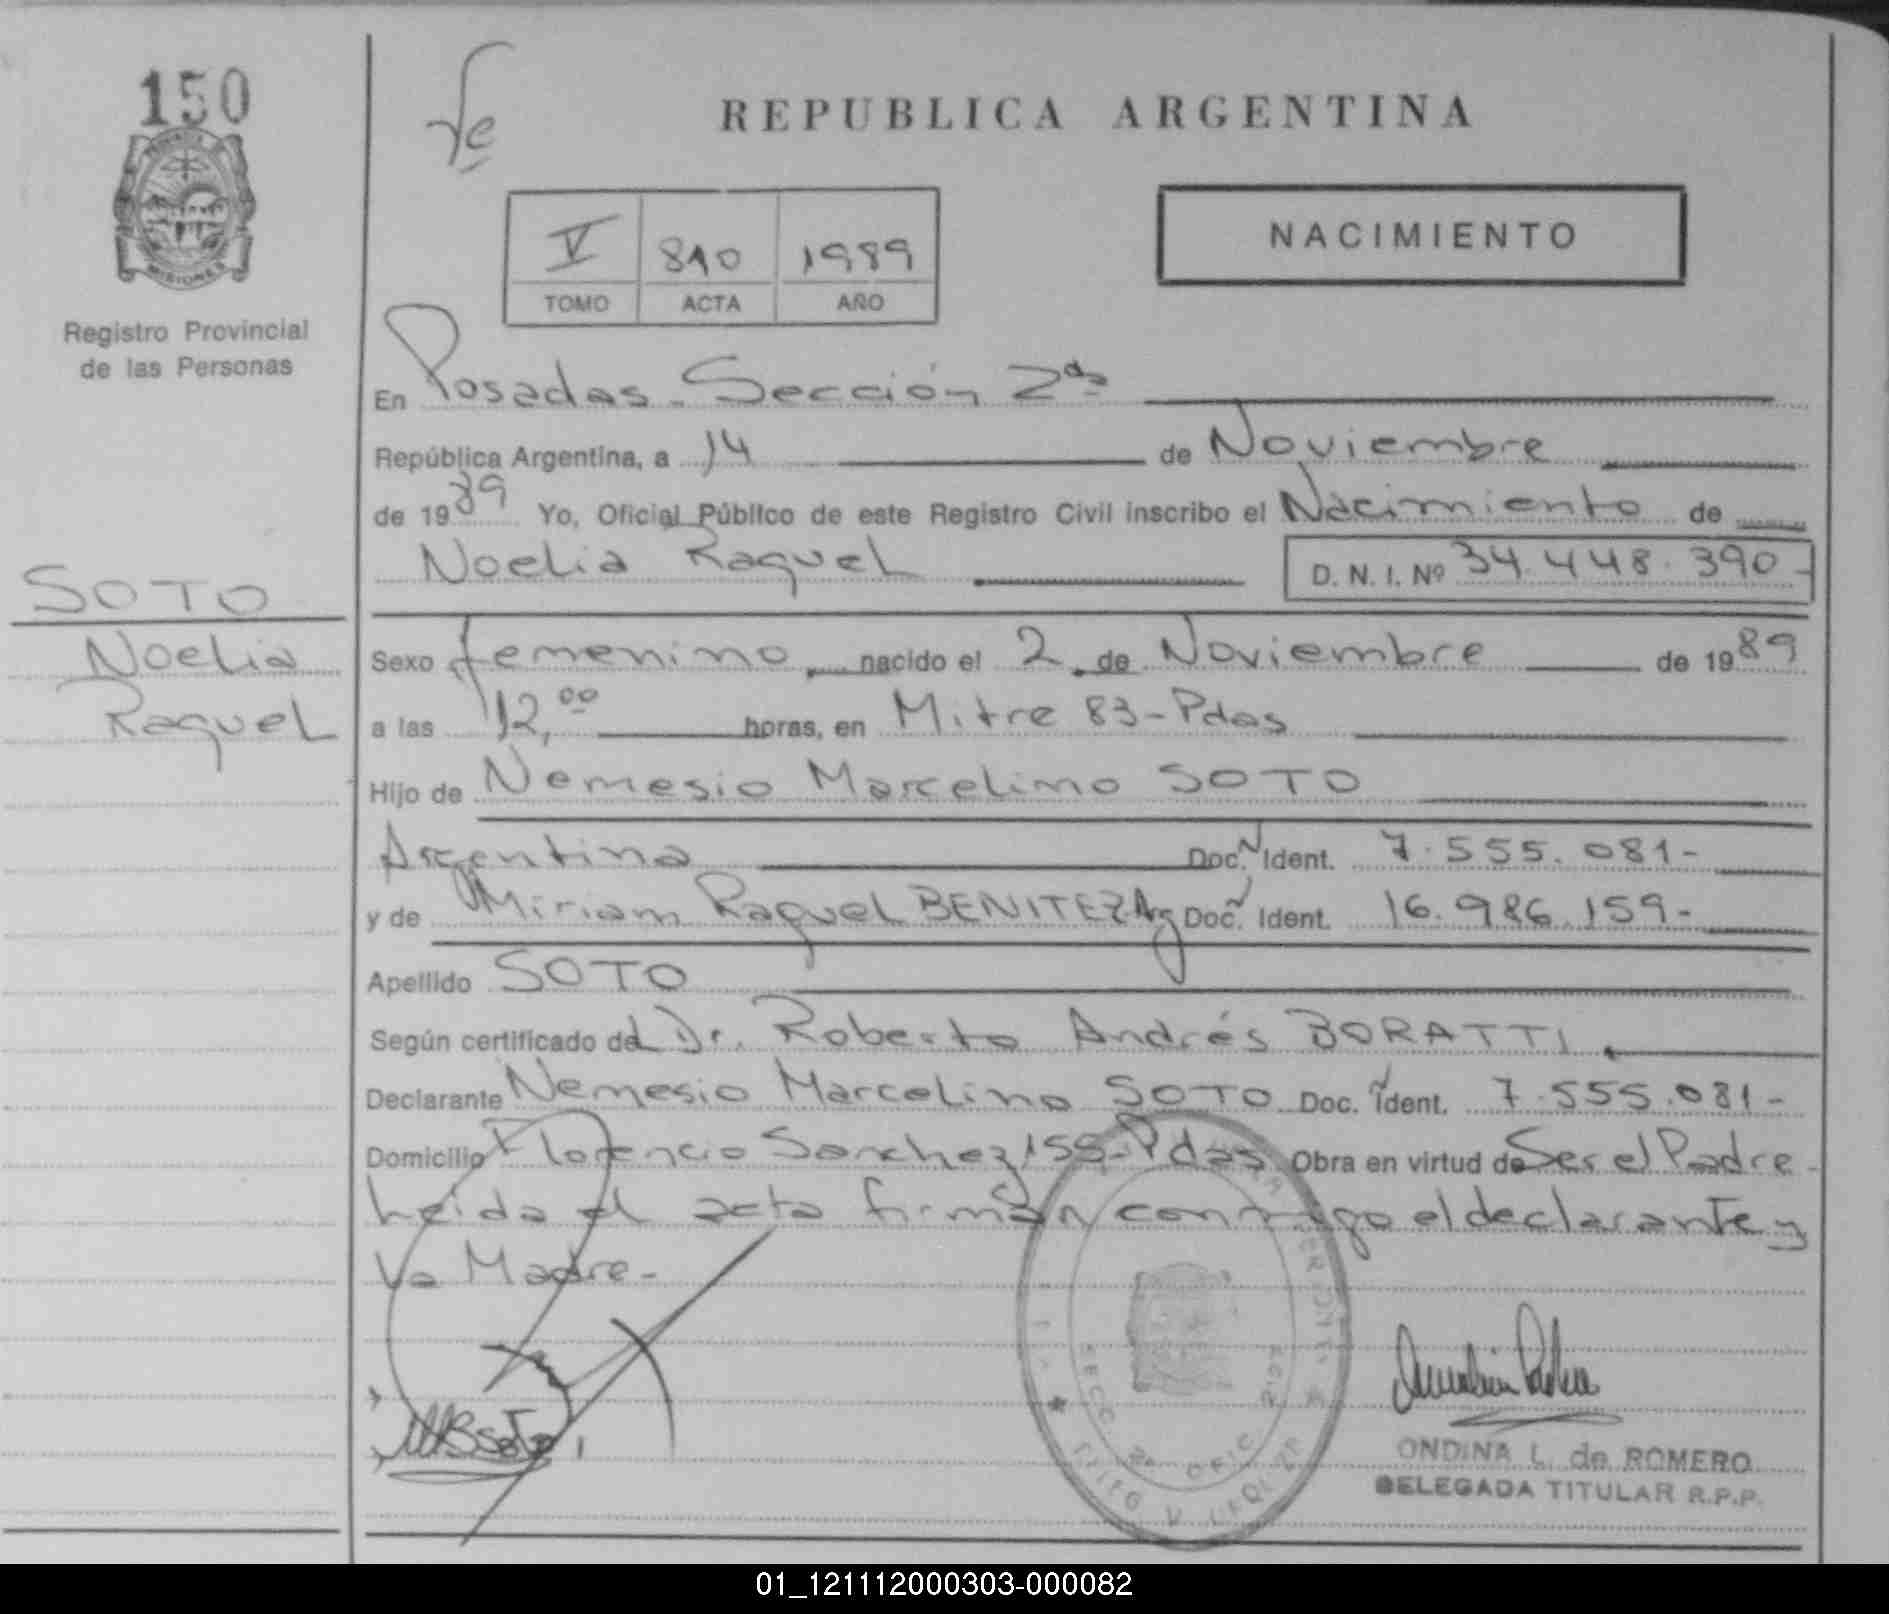 150
MISIONES
Registro Provincial
de las Personas
REPUBLICA ARGENTINA
NACIMIENTO
V 810 1989
TOMO ACTA AÑO
En Posadas - Sección 2da
República Argentina, a 14 de Noviembre
de 1989 Yo, Oficial Público de este Registro Civil inscribo el Nacimiento de
Noelia Raquel D. N. I. Nº 34.448.390-
SOTO
Noelia
Raquel
Sexo femenino, nacido el 2 de Noviembre de 1989
a las 12,00 horas, en Mitre 83-Pdas
Hijo de Nemesio Marcelino SOTO
Argentina Doc. Ident. 7.555.081-
y de Miriam Raquel BENITEZ Arg Doc. Ident. 16.986.159-
Apellido SOTO
Según certificado del Dr. Roberto Andrés BORATTI
Declarante Nemesio Marcelino SOTO Doc. Ident. 7.555.081-
Domicilio Florencio Sanchez 155-Pdas Obra en virtud de Ser el Padre-
Leida el acta firman conmigo el declarante y
la Madre-
ONDINA L. de ROMERO
DELEGADA TITULAR R.P.P.
01_121112000303-000082